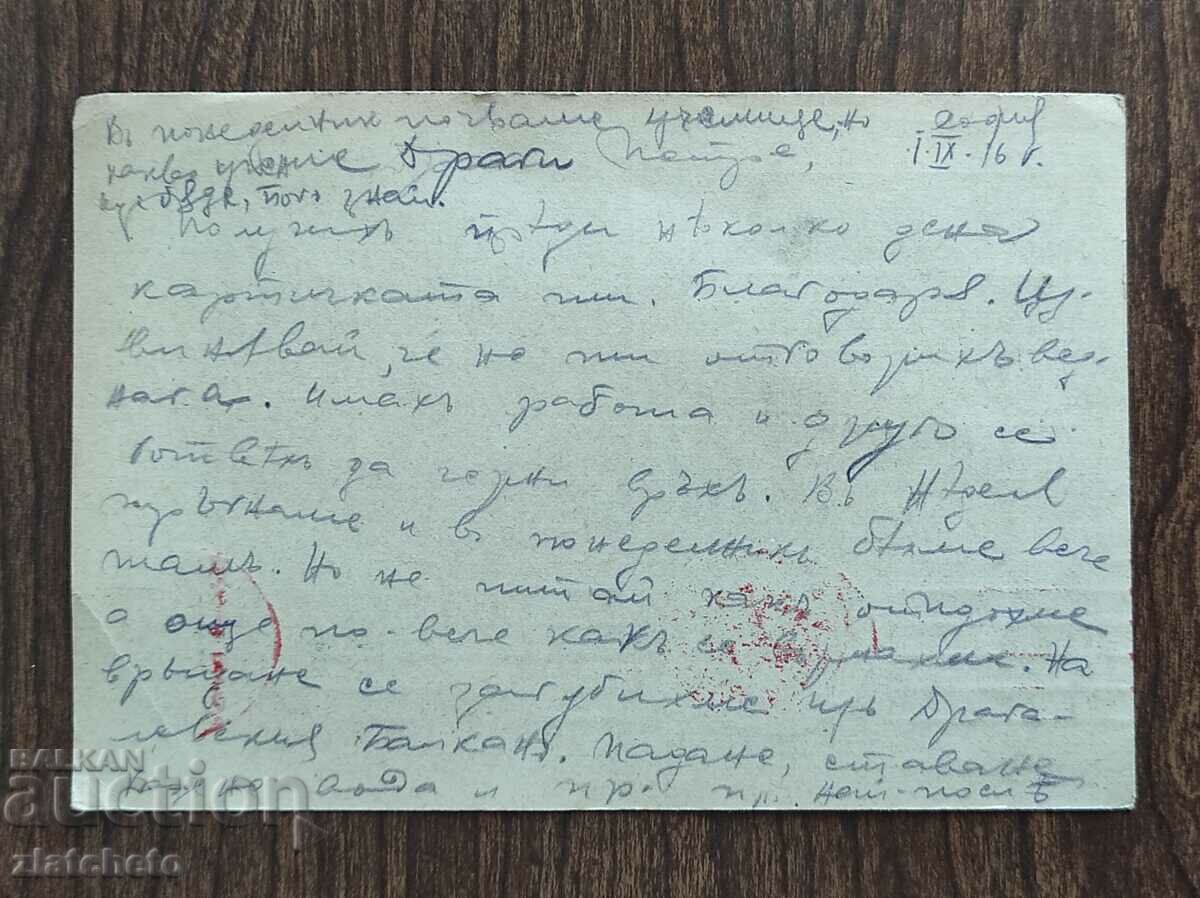 Въ понеделник почваме училище, но
какво учение
ще бѫде, Богъ знай.
София
1.IX.16 г.
Драги Петре,
Получихъ прѣди нѣколко дена
картичката ти. Благодаря. Из-
винявай, че не ти отговорихъ вед-
нага. Имахъ работа и друго се
готвѣхъ да горни връхъ. Въ Недѣля
тръгнаме и въ понеделникъ бѣхме вече
тамъ. Но не питай какъ отидохме
а още по-вече какъ се върнахме. На
връщане се загубихме изъ Драга-
левския Балканъ. Падане, ставане,
вода и пр. пр. Най-послѣ
BALKAN
auction
zlatcheto